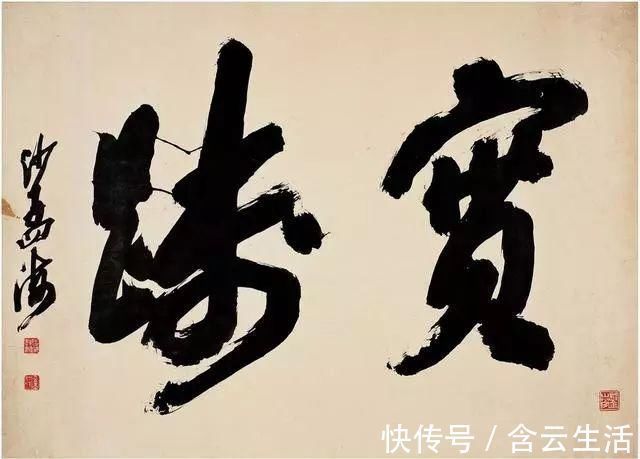 實踐
沙孟海
快传号/含云生活